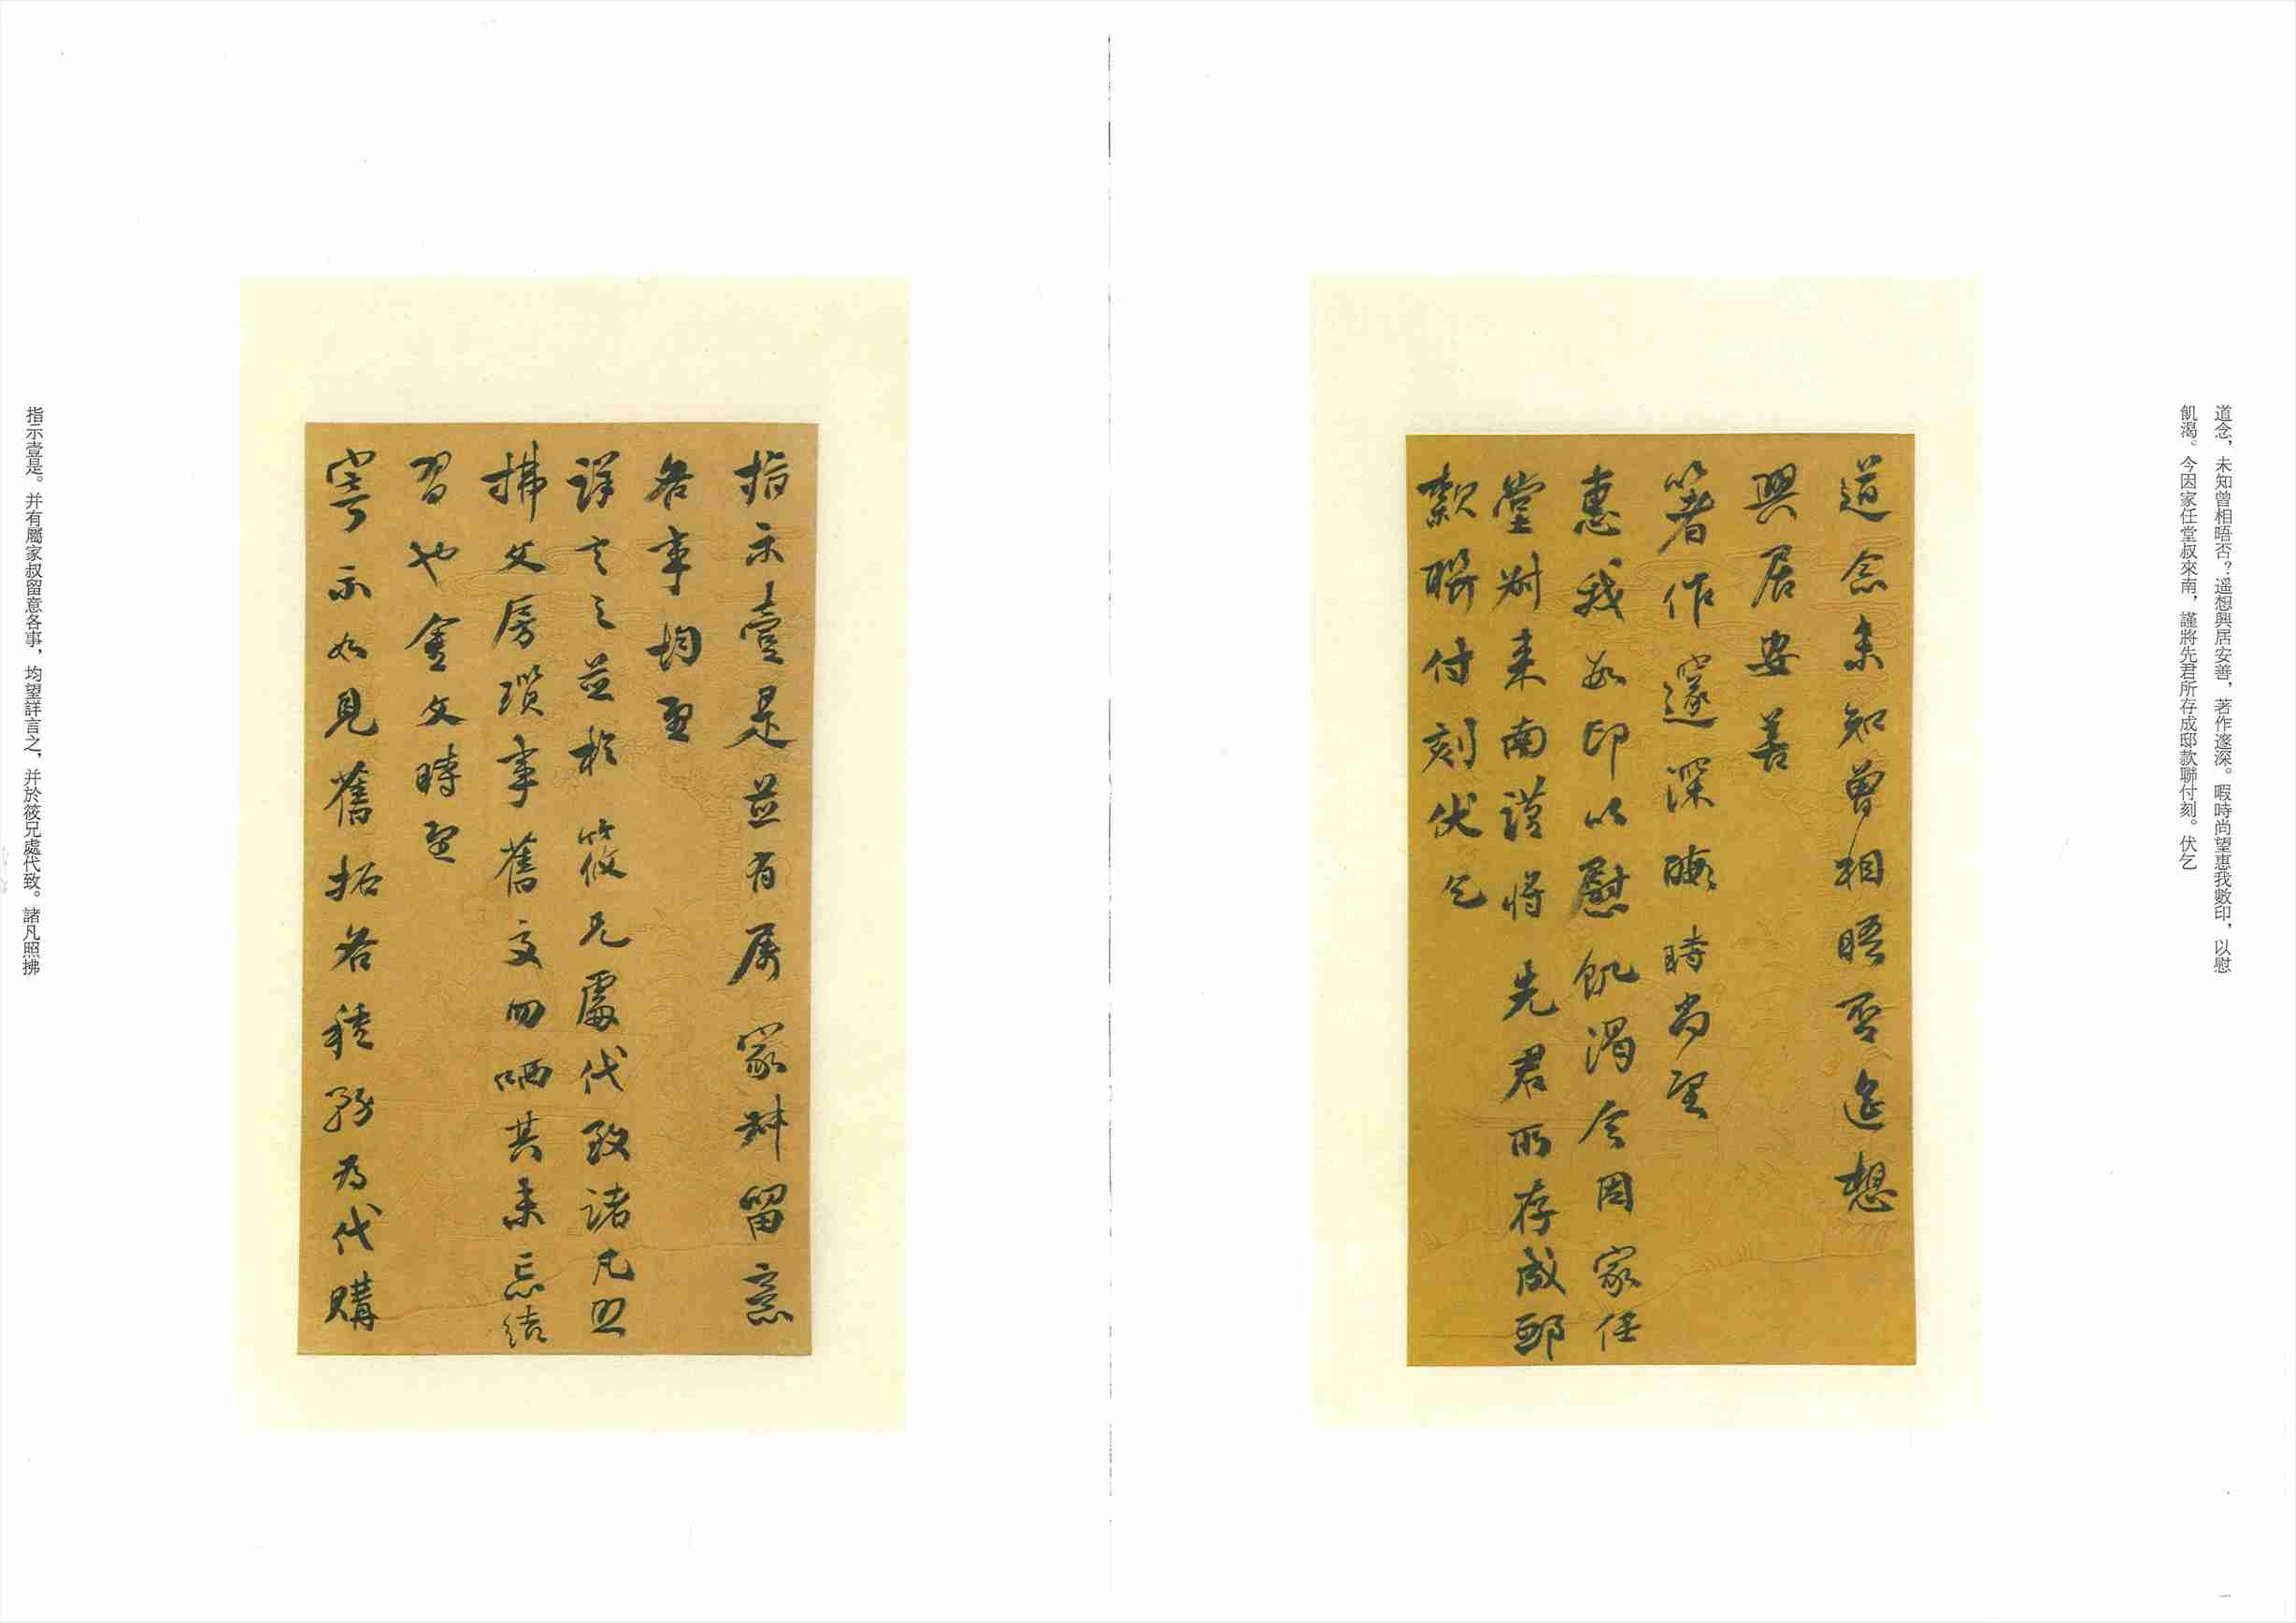 道念，未知曾相晤否？遥想興居安善，著作邃深。暇時尚望惠我數印，以慰
飢渴。今因家任堂叔來南，謹將先君所存成邸款聯付刻。伏乞
道念未知曾相晤否遥想
興居安善
箸作邃深暇時尚望
惠我數印以慰飢渴今因家任
堂叔来南謹将先君所存成邸
款聯付刻伏乞
一
指示壹是並有属家叔留意
各事均望
詳言之並於筱兄處代致諸凡照
拂文房瑣事舊交毋哂其未忘結
習也金文時望
寄示如見舊拓各種務为代購
指示壹是。并有屬家叔留意各事，均望詳言之，并於筱兄處代致。諸凡照拂